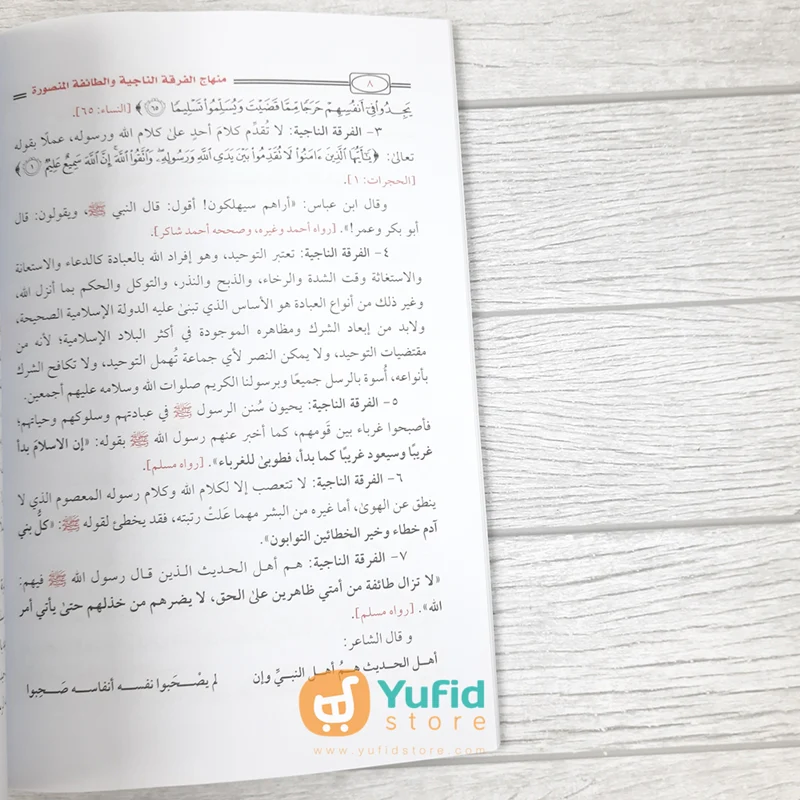 ٨
منهاج الفرقة الناجية والطائفة المنصورة
يَجِدُوا۟ فِىٓ أَنفُسِهِمْ حَرَجًا مِّمَّا قَضَيْتَ وَيُسَلِّمُوا۟ تَسْلِيمًا ﴿٦٥﴾ [النساء: ٦٥].
٣- الفرقة الناجية: لا تُقدِّم كلامَ أحدٍ علىٰ كلام الله ورسوله، عملًا بقوله
تعالىٰ: ﴿يَـٰٓأَيُّهَا ٱلَّذِينَ ءَامَنُوا۟ لَا تُقَدِّمُوا۟ بَيْنَ يَدَىِ ٱللَّهِ وَرَسُولِهِۦ ۖ وَٱتَّقُوا۟ ٱللَّهَ ۚ إِنَّ ٱللَّهَ سَمِيعٌ عَلِيمٌ ١﴾
[الحجرات: ١].
وقال ابن عباس: «أراهم سيهلكون! أقول: قال النبي ﷺ، ويقولون: قال
أبو بكر وعمر!». [رواه أحمد وغيره، وصححه أحمد شاكر].
٤- الفرقة الناجية: تعتبر التوحيد، وهو إفراد الله بالعبادة كالدعاء والاستعانة
والاستغاثة وقت الشدة والرخاء، والذبح والنذر، والتوكل والحكم بما أنزل الله،
وغير ذلك من أنواع العبادة هو الأساس الذي تبنىٰ عليه الدولة الإسلامية الصحيحة،
ولابد من إبعاد الشرك ومظاهره الموجودة في أكثر البلاد الإسلامية؛ لأنه من
مقتضيات التوحيد، ولا يمكن النصر لأي جماعة تُهمل التوحيد، ولا تكافح الشرك
بأنواعه، أُسوة بالرسل جميعًا وبرسولنا الكريم صلوات الله وسلامه عليهم أجمعين.
٥- الفرقة الناجية: يحيون سُنن الرسول ﷺ في عبادتهم وسلوكهم وحياتهم؛
فأصبحوا غرباء بين قَومهم، كما أخبر عنهم رسول الله ﷺ بقوله: «إن الاسلامَ بدأ
غريبًا وسيعود غريبًا كما بدأ، فطوبىٰ للغرباء». [رواه مسلم].
٦- الفرقة الناجية: لا تتعصب إلا لكلام الله وكلام رسوله المعصوم الذي لا
ينطق عن الهوىٰ، أما غيره من البشر مهما عَلتْ رتبته، فقد يخطئ لقوله ﷺ: «كلُّ بني
آدم خطاء وخير الخطائين التوابون».
٧- الفرقة الناجية: هـم أهـل الحـديث الـذين قـال رسول الله ﷺ فيهم:
«لا تزال طائفة من أمتي ظاهرين علىٰ الحق، لا يضرهم من خذلهم حتىٰ يأتي أمر
الله». [رواه مسلم].
و قال الشاعر:
أهل الحـديث هـمُ أهـل النبـيِّ وإن
لم يصْـحَبوا نفسـه أنفاسـه صَـحِبوا
Yufid
store
www.yufidstore.com